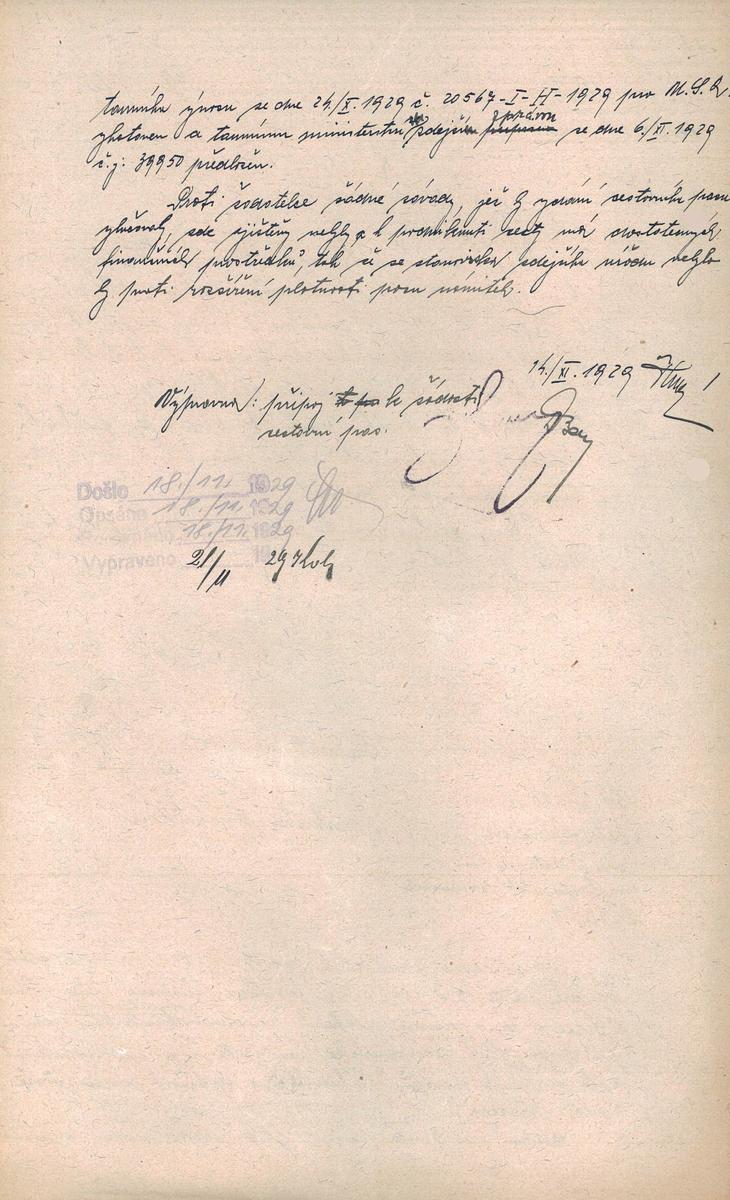 tamního výnosu ze dne 24./X. 1929 č. 20567-I-H-1929 pro M.S.
zhotoven a tamnímu ministerstvu zdejší zprávou ze dne 6./XI. 1929
č.j: 39950 předložen.
Proti žadatelce žádné závady, jež by vydání cestovního pasu
vylučovaly, zde zjištěny nebyly a k podniknutí cesty má dostatečných
finančních prostředků, tak že se stanoviska zdejšího úřadu nebylo
by proti rozšíření platnosti pasu námitek.
14./XI. 1929
Výpravna: připoj k žádosti
cestovní pas.
Došlo 18./11. 1929
Opsáno 18./11. 1929
18./11. 1929
Vypraveno
21/11 29